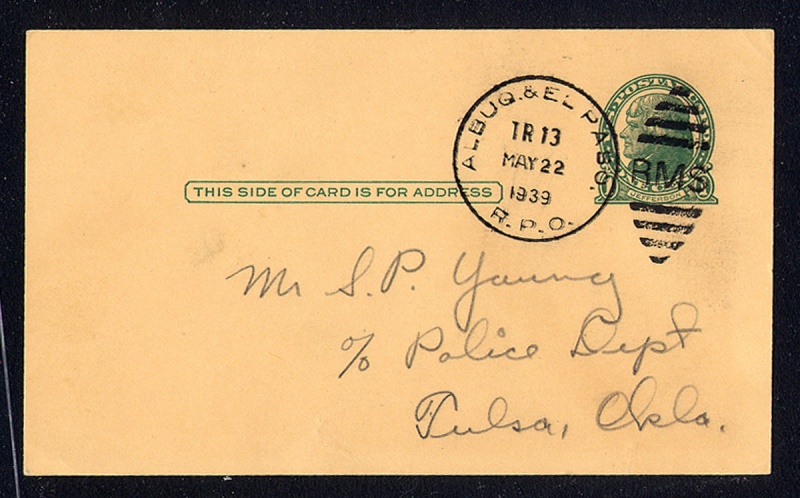 ALBUQ. & EL PASO.
TR 13
MAY 22
1939
R.P.O.
RMS
JEFFERSON
THIS SIDE OF CARD IS FOR ADDRESS
Mr S. P. Young
c/o Police Dept
Tulsa, Okla.